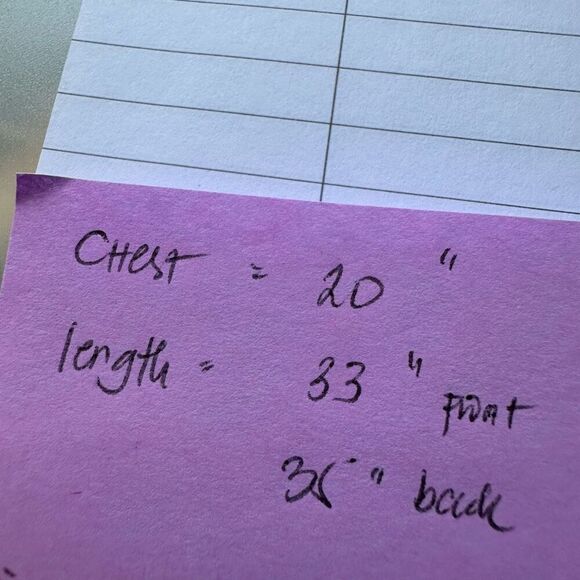 Chest = 20 "
length = 33 " front
35 " back